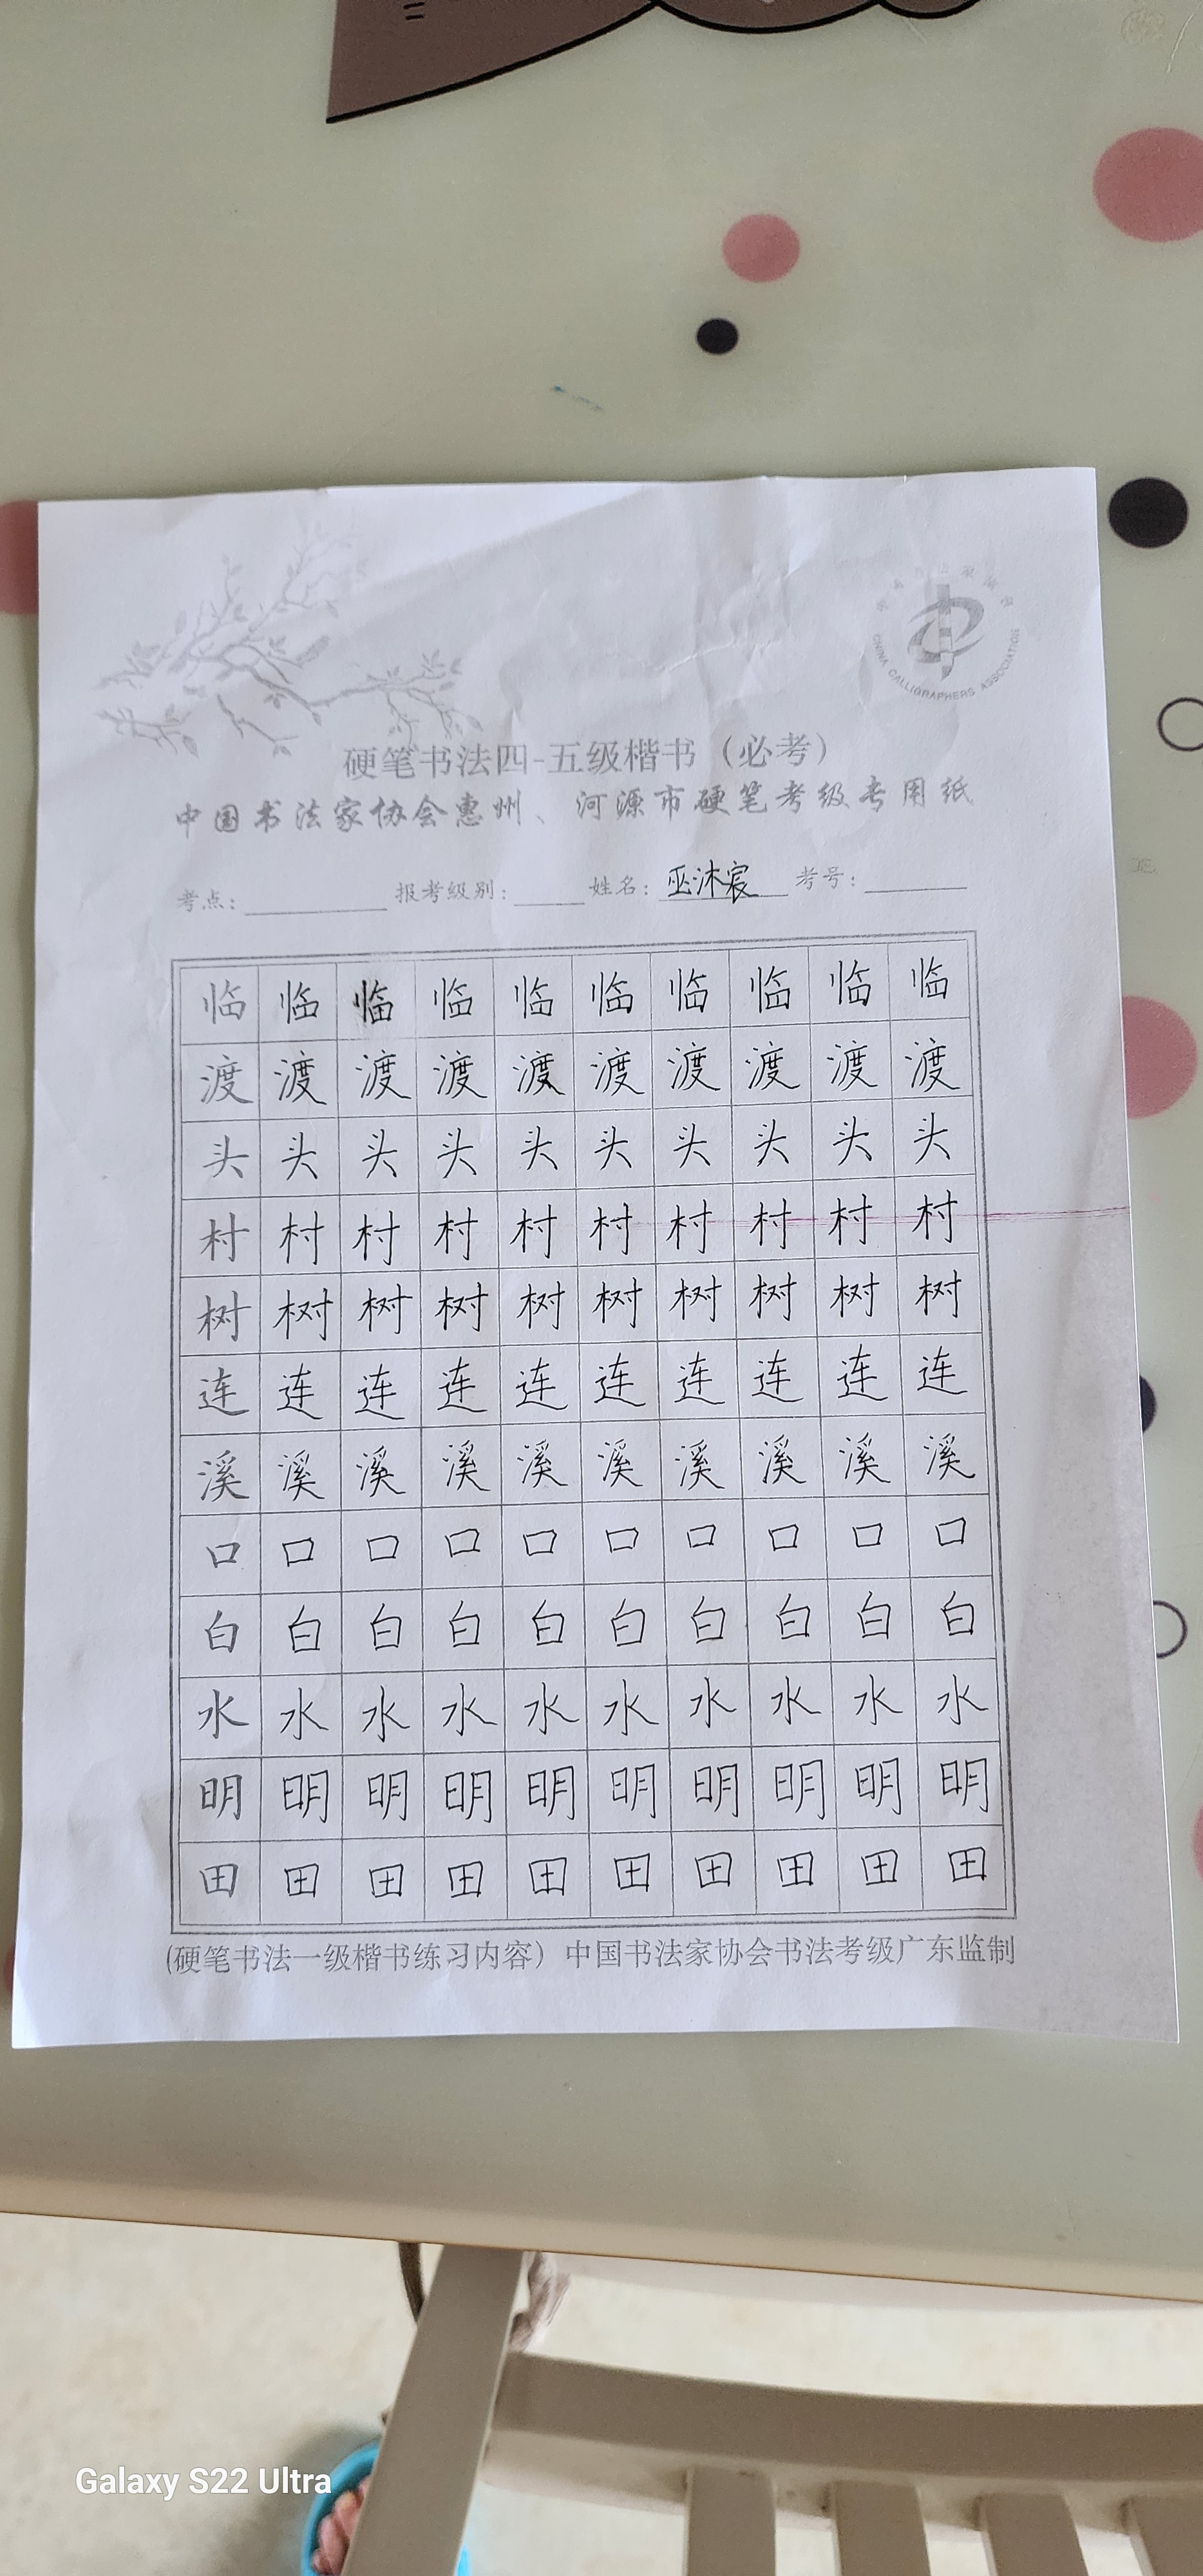 CHINA CALLIGRAPHERS ASSOCIATION
硬笔书法四-五级楷书（必考）
中国书法家协会惠州、河源市硬笔考级专用纸
考点: 报考级别: 姓名: 巫沐宸 考号:
临 临 临 临 临 临 临 临 临 临
渡 渡 渡 渡 渡 渡 渡 渡 渡 渡
头 头 头 头 头 头 头 头 头 头
村 村 村 村 村 村 村 村 村 村
树 树 树 树 树 树 树 树 树 树
连 连 连 连 连 连 连 连 连 连
溪 溪 溪 溪 溪 溪 溪 溪 溪 溪
口 口 口 口 口 口 口 口 口 口
白 白 白 白 白 白 白 白 白 白
水 水 水 水 水 水 水 水 水 水
明 明 明 明 明 明 明 明 明 明
田 田 田 田 田 田 田 田 田 田
(硬笔书法一级楷书练习内容）中国书法家协会书法考级广东监制
Galaxy S22 Ultra